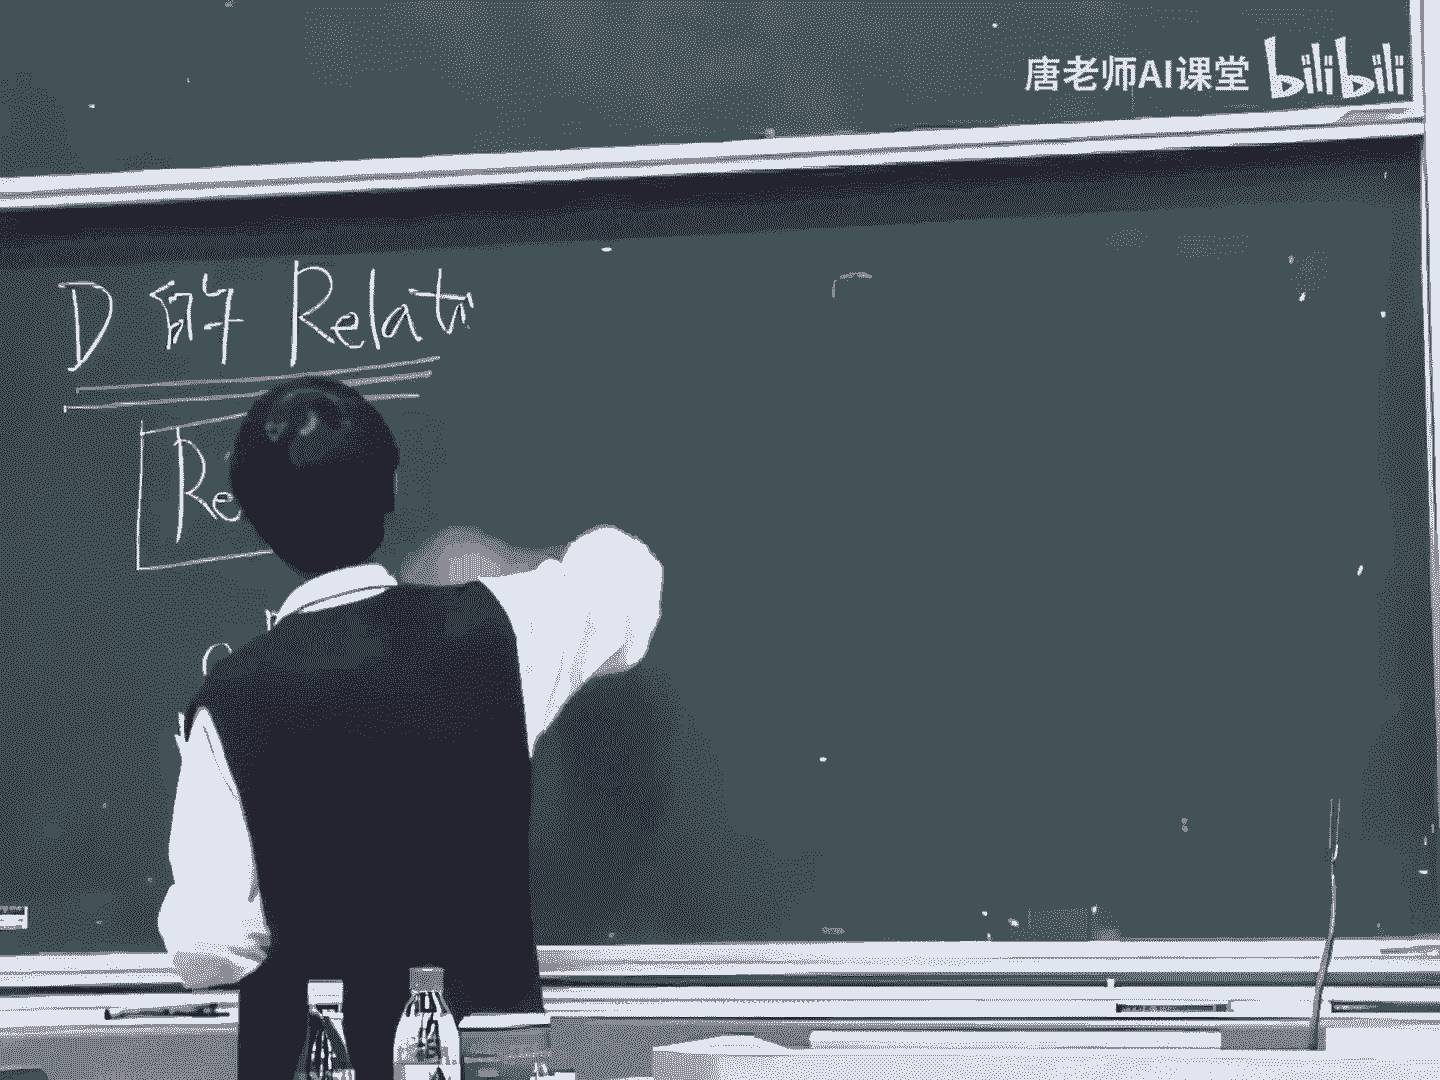 唐老师AI课堂 bilibili
D 的 Relati
Re